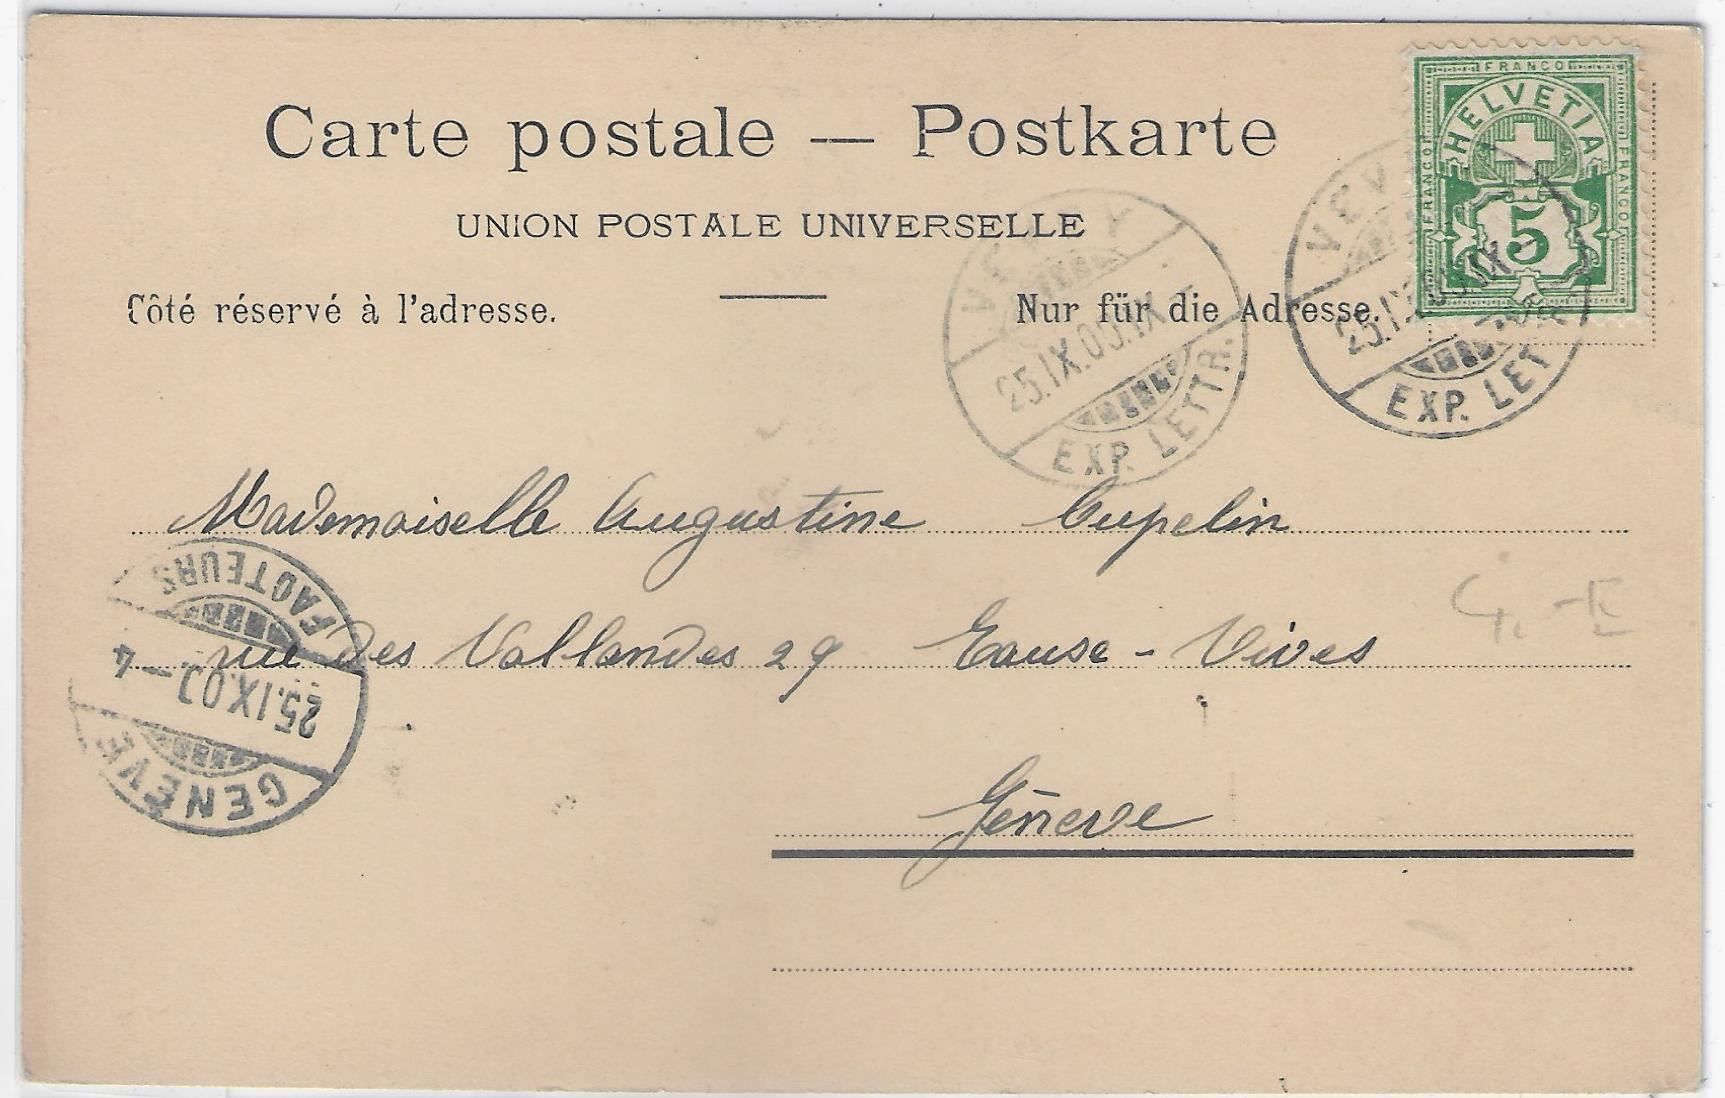 Carte postale — Postkarte
FRANCO
FRANCO
HELVETIA
FRANCO
5
UNION POSTALE UNIVERSELLE
Côté réservé à l'adresse.
Nur für die Adresse.
VEVEY
25.IX.05.IX
EXP. LETTR.
VEV
25.IX
EXP. LET
Mademoiselle Augustine Cupelin
rue des Vollandes 29 Eause - Vives
Genève
FACTEURS
25.IX.0 — 4
GENÈVE